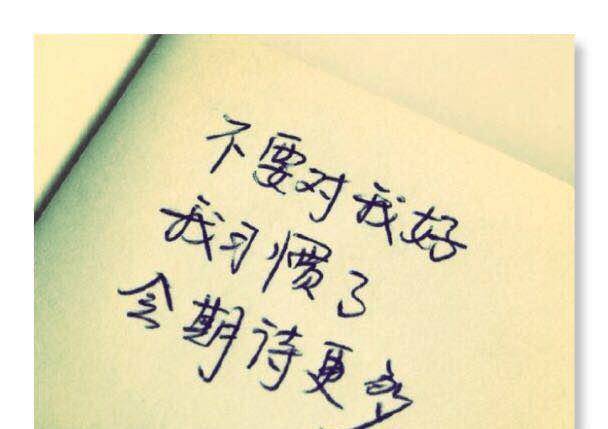 不要对我好
我习惯了
会期待更多